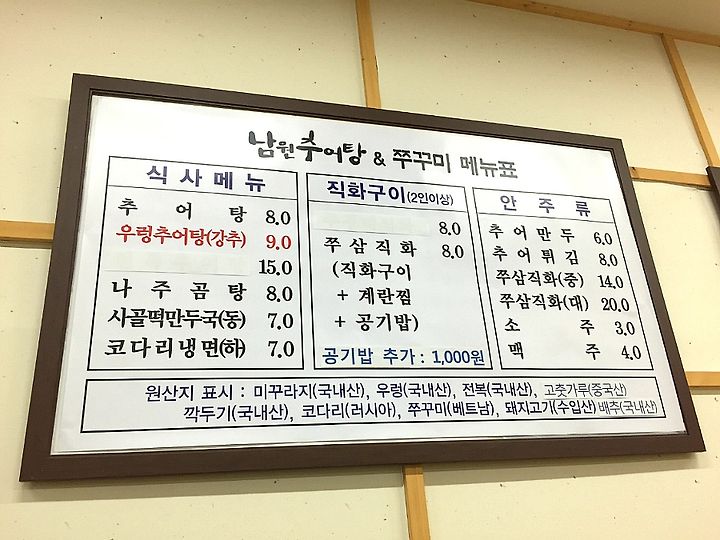 남원추어탕 & 쭈꾸미 메뉴표
식사메뉴
추어탕 8.0
우렁추어탕(강추) 9.0
15.0
나주곰탕 8.0
사골떡만두국(동) 7.0
코다리냉면(하) 7.0
직화구이(2인이상)
8.0
쭈삼직화 8.0
(직화구이
+ 계란찜
+ 공기밥)
공기밥 추가 : 1,000원
안주류
추어만두 6.0
추어튀김 8.0
쭈삼직화(中) 14.0
쭈삼직화(대) 20.0
소주 3.0
맥주 4.0
원산지 표시 : 미꾸라지(국내산), 우렁(국내산), 전복(국내산), 고춧가루(중국산)
깍두기(국내산), 코다리(러시아), 쭈꾸미(베트남), 돼지고기(수입산) 배추(국내산)